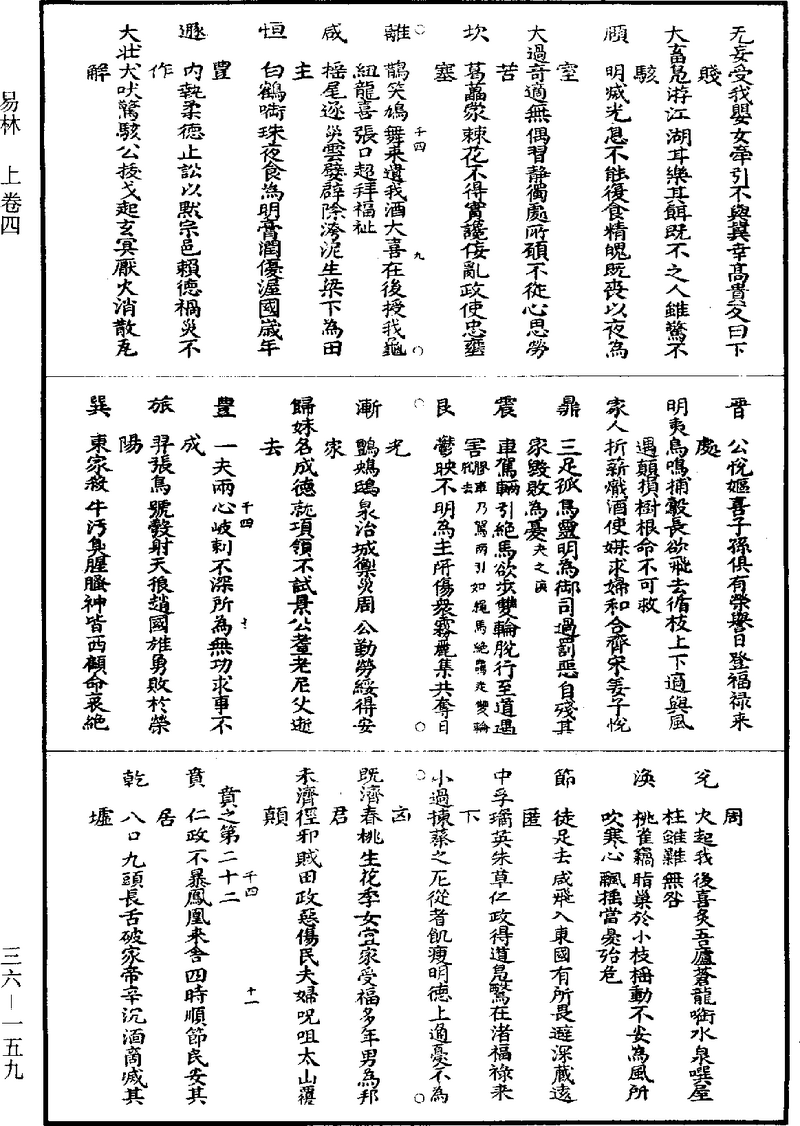 易林　上卷四
三六—一五九
无妄受我嬰女牽引不與冀幸髙貴反曰下
賤
大畜鳬游江湖甘樂其餌既不之人雖驚不
駭
頤　明滅光息不能復食精魄既喪以夜為
室
大過奇適無偶習靜獨處所碩不從心思勞
苦
坎　葛藟蒙棘花不得實讒佞亂政使忠壅
塞
離　鵲笑鳩舞來遺我酒大喜在後授我龜
紐龍喜張口起拜福祉
○　千四　九　○
咸　摇尾逐災雲孽辟除涔泥生梁下為田
主
恒　白鶴銜珠夜食為明膏潤優渥國嵗年
豊
遯　内執柔德止訟以黙宗邑賴德禍災不
作
大壮犬吠驚駭公拔戈起玄冥厭火消散瓦
解
晉　公悅嫗喜子孫俱有榮譽日登福禄來
處
明夷鳥鳴捕鷇長欲飛去循枝上下適與風
遇顛損樹根命不可救
家人折薪熾酒使媒求婦和合齊宋姜子悅
鼎　三足孤馬靈明為御司過罰惡自殘其
家毀敗為憂夬之演
震　車駕輛引絕馬欲步雙輪脱行至道遇
害
艮　鬱映不明為主所傷衆霧麗集共奪日
光
○　○
漸　鸚鵡鴟梟治城禦災周公勤勞綏得安
家
歸妹名成德就項領不試景公耋老尼父逝
去
豊　一夫兩心岐刺不深所為無功求事不
成
千四　十
旅　羿張烏號彀射天狼趙國雄勇敗於榮
陽
巽　東家殺牛汚臭腥臊神背西顧命衰絕
周
兊　火起我後喜炙吾廬蒼龍銜水泉噀屋
柱雖難無咎
渙　桃雀竊脂巢於小枝揺動不安為風所
吹寒心飄揺當憂殆危
節　徒足去咸飛入東國有所畏避深藏逺
匿
中孚璚英朱草仁政得道鳬鷖在渚福禄來
下
小過揀蔡之死從者飢瘦明德上通憂不為
凶
○　○
既濟春桃生花季女宜家受福多年男為邦
君
未濟徑邪賊田政惡傷民夫婦呪咀太山覆
顛
賁之第二十二
千四　十一
賁　仁政不暴鳳凰來舍四時順節民安其
居
乾　八口九頭長舌破家帝辛沉湎商滅其
墟